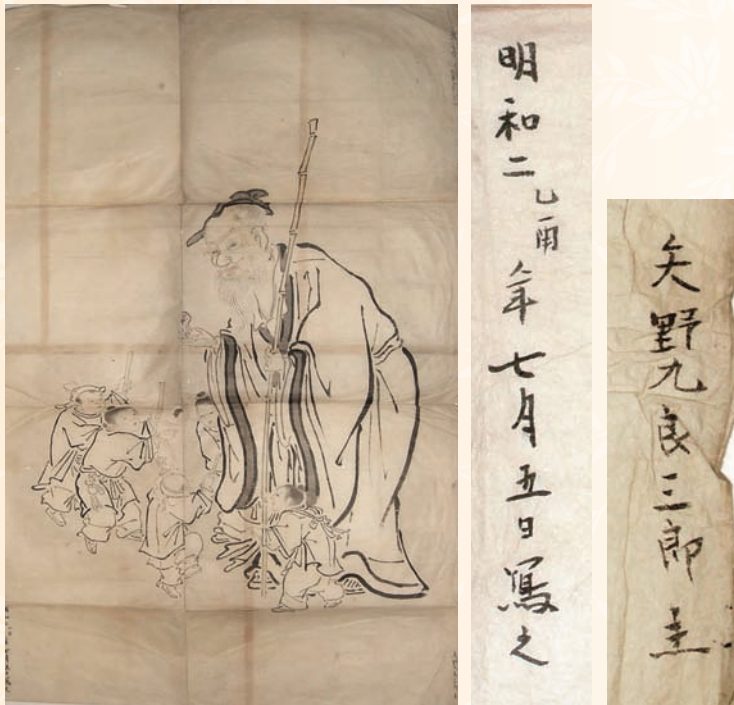 明和二乙酉年七月五日寫之
矢野九良三郎